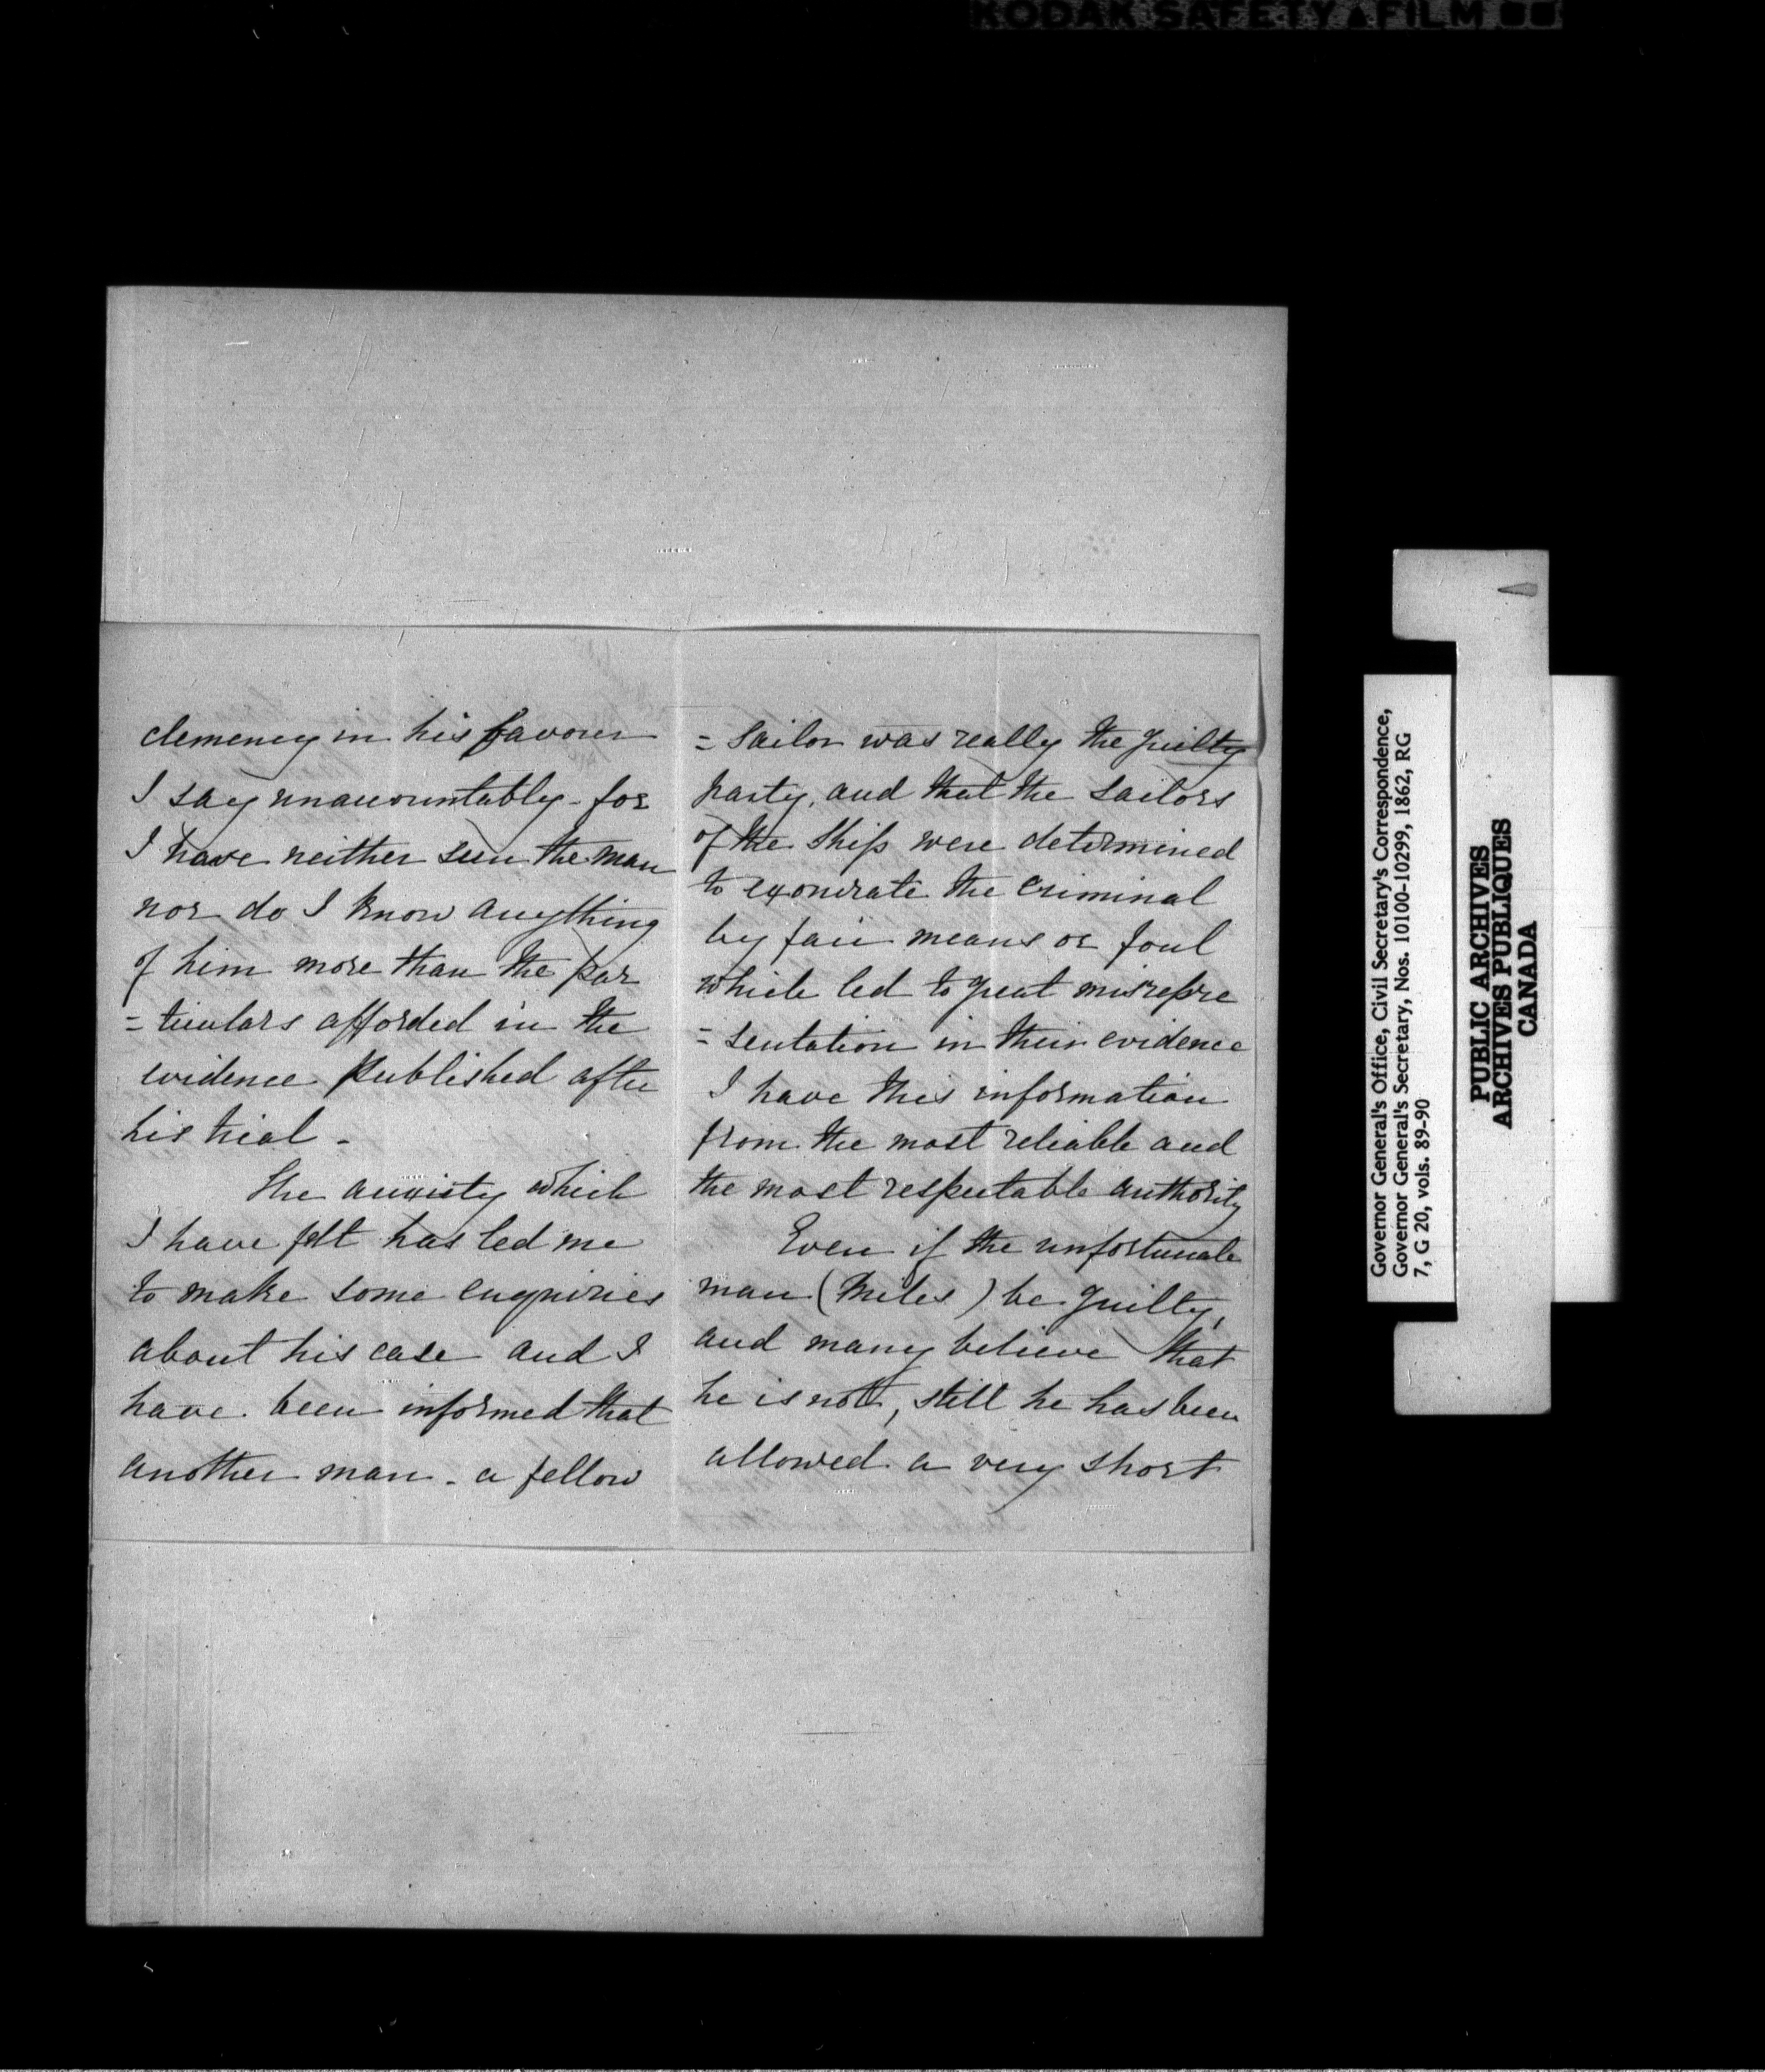 KODAK SAFETY ▲ FILM
clemency in his favour
I say unaccountably - for
I have neither seen the man
nor do I know anything
of him more than the par
= ticulars afforded in the
evidence published after
his trial -
The anxiety which
I have felt has led me
to make some enquiries
about his case and I
have been informed that
another man - a fellow
= Sailor was really the guilty
party, and that the sailors
of the Ship were determined
to exonerate the criminal
by fair means or foul
which led to great misrepre
= sentation in their evidence
I have this information
from the most reliable and
the most respectable authority
Even if the unfortunate
man (Miles) be guilty,
and many believe that
he is not, still he has been
allowed a very short
Governor General's Office, Civil Secretary's Correspondence,
Governor General's Secretary, Nos. 10100-10299, 1862, RG
7, G 20, vols. 89-90
PUBLIC ARCHIVES
ARCHIVES PUBLIQUES
CANADA